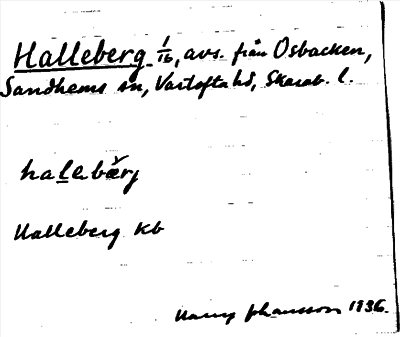 Halleberg 1/16, avs. från Osbacken,
Sandhems sn, Vartofta hd, Skarab. l.
halebärj
Halleberg kb
Harry Johansson 1936.